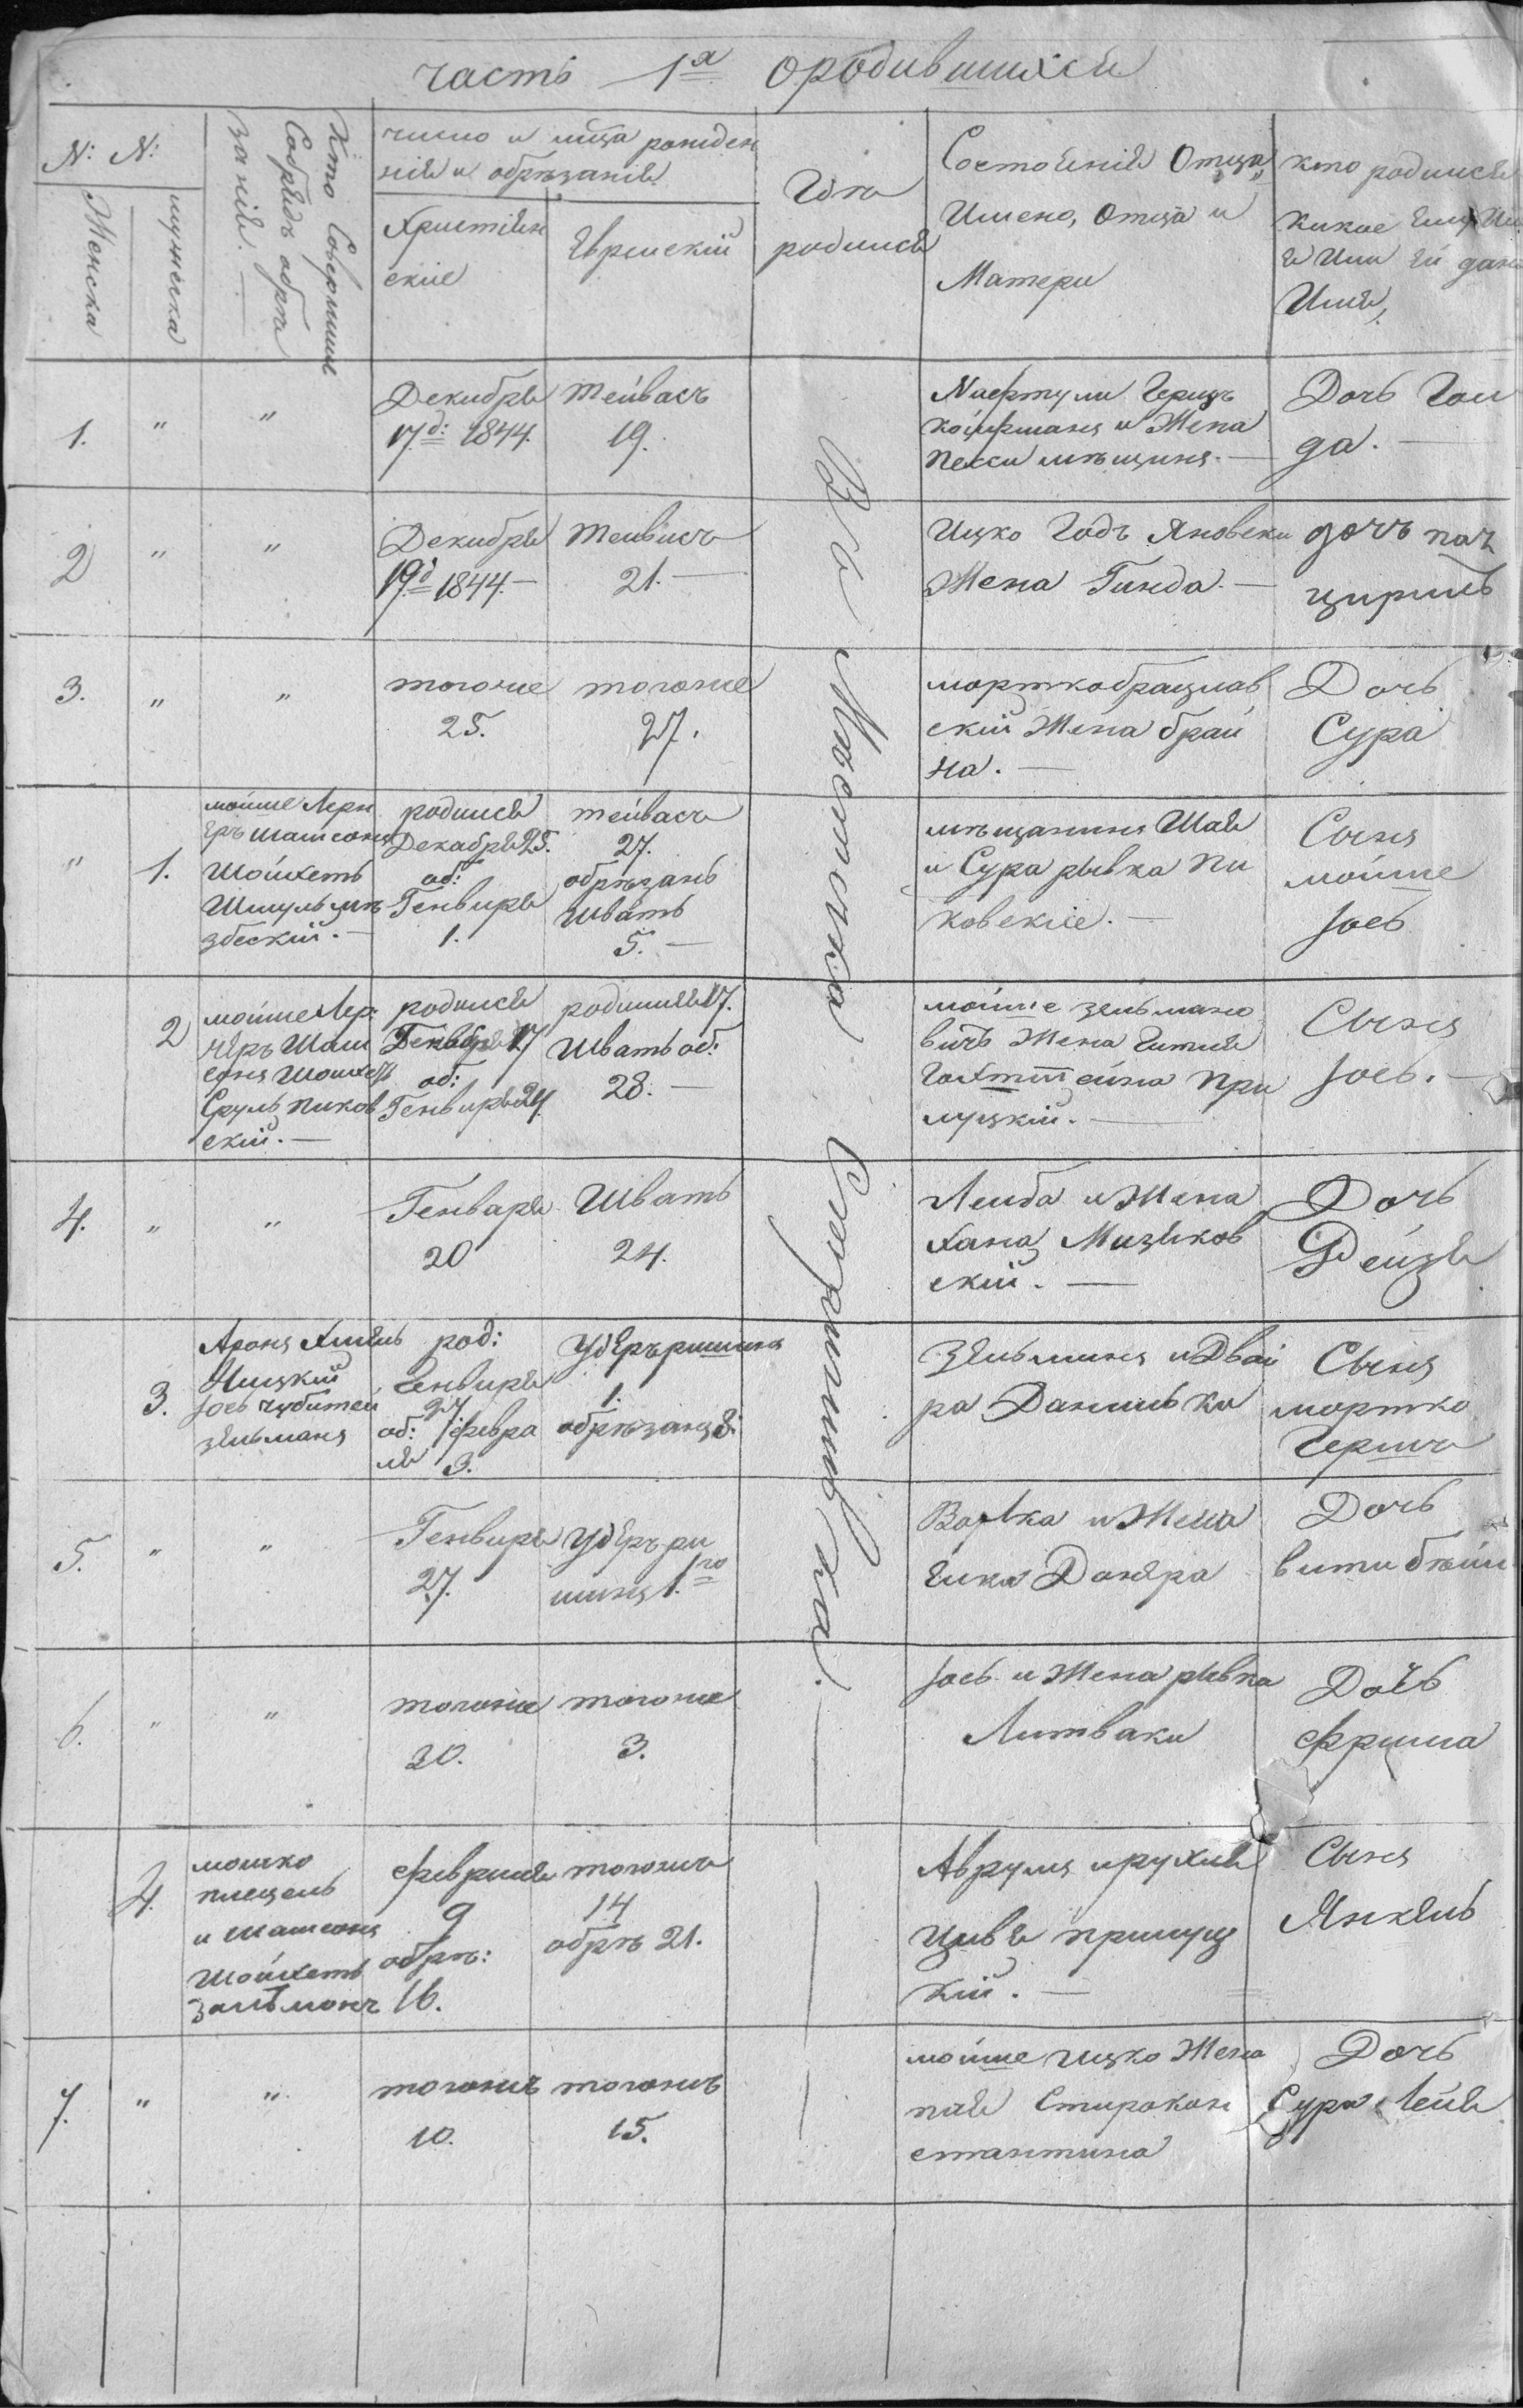 часть 1я ородившихся
N: N:
Женска
мужеска
Кто Совершил
Собрядъ обрѣ
занія.
число и мѣца рожден
нія и обрѣзанія
Христіян
скіе
Еврейскій
Где
родился
Состоянія Отца
Имено, Отца и
Матери
кто родился
какое ему
и или ей дано
Имя,
1. " "
Декабря
17д: 1844.
Тейвасъ
19.
Нафтули Герцъ
койфманъ и Жена
песси мѣщаня.
Дочь Гол
да.
2 " "
Декабря
19д 1844.
Тейвисъ
21.
Ицко Годъ Яновски
Жена Гинда.
дочь
3. " "
тогоже
25.
тогоже
27.
мортко брацлав
скій Жена брай
на.
Дочь
Сура
" 1.
мойше Лерн
еръ Шамсонъ
Шойхетъ
Шмуль
збескій.
родился
Декабря 25.
об:
Генваря
1.
тейвасъ
27.
обрѣзанъ
Шватъ
5.
мѣщанинъ Шая
и Сура рывка Пи
ковскіе.
Сынъ
мойше
Іось
2
мойше Лер:
неръ Шам
сонъ Шойхетъ
Сруль пиков
скій.
родился
Генваря 17
об:
Генваря 24
родился 17.
Шватъ об:
28.
мойше зельмано
вичъ Жена Гитля
Гохштейна При
луцкій.
Сынъ
Іось.
4. " "
Генваря
20
Шватъ
24.
Лейба и Жена
Хана Мизяков
скій.
Дочь
Рейзя
3.
Аронъ Хмель
ницкій
Іось чубатей
зельманъ
род:
Генваря
27
об: февра
ля 3.
Удеръ ришинъ
1.
обрѣзанъ 8.
Зельманъ и Двой
ра Данилька
Сынъ
мортко
Гершъ
5. " "
Генваря
27.
Удеръ ри
шинъ 1.го
Волька и Жена
Ейка Донера
Дочь
6. " "
тогоже
30.
тогоже
3.
Іось и Жена рывка
Литваки
Дочь
Фрима
4.
мошко
пмецель
и Шамсонъ
Шойхетъ
зальмонъ
февраля
9
обрѣ:
16.
тогоже
14
обрѣ 21.
Аврумъ и рухля
Цивя прилуц
кій.
Сынъ
Янкель
7. " "
тогожъ
10.
тогожъ
15.
мойше Ицко Жена
пая Старокон
стантина
Дочь
Сура Лейя
Въ Мѣстечка